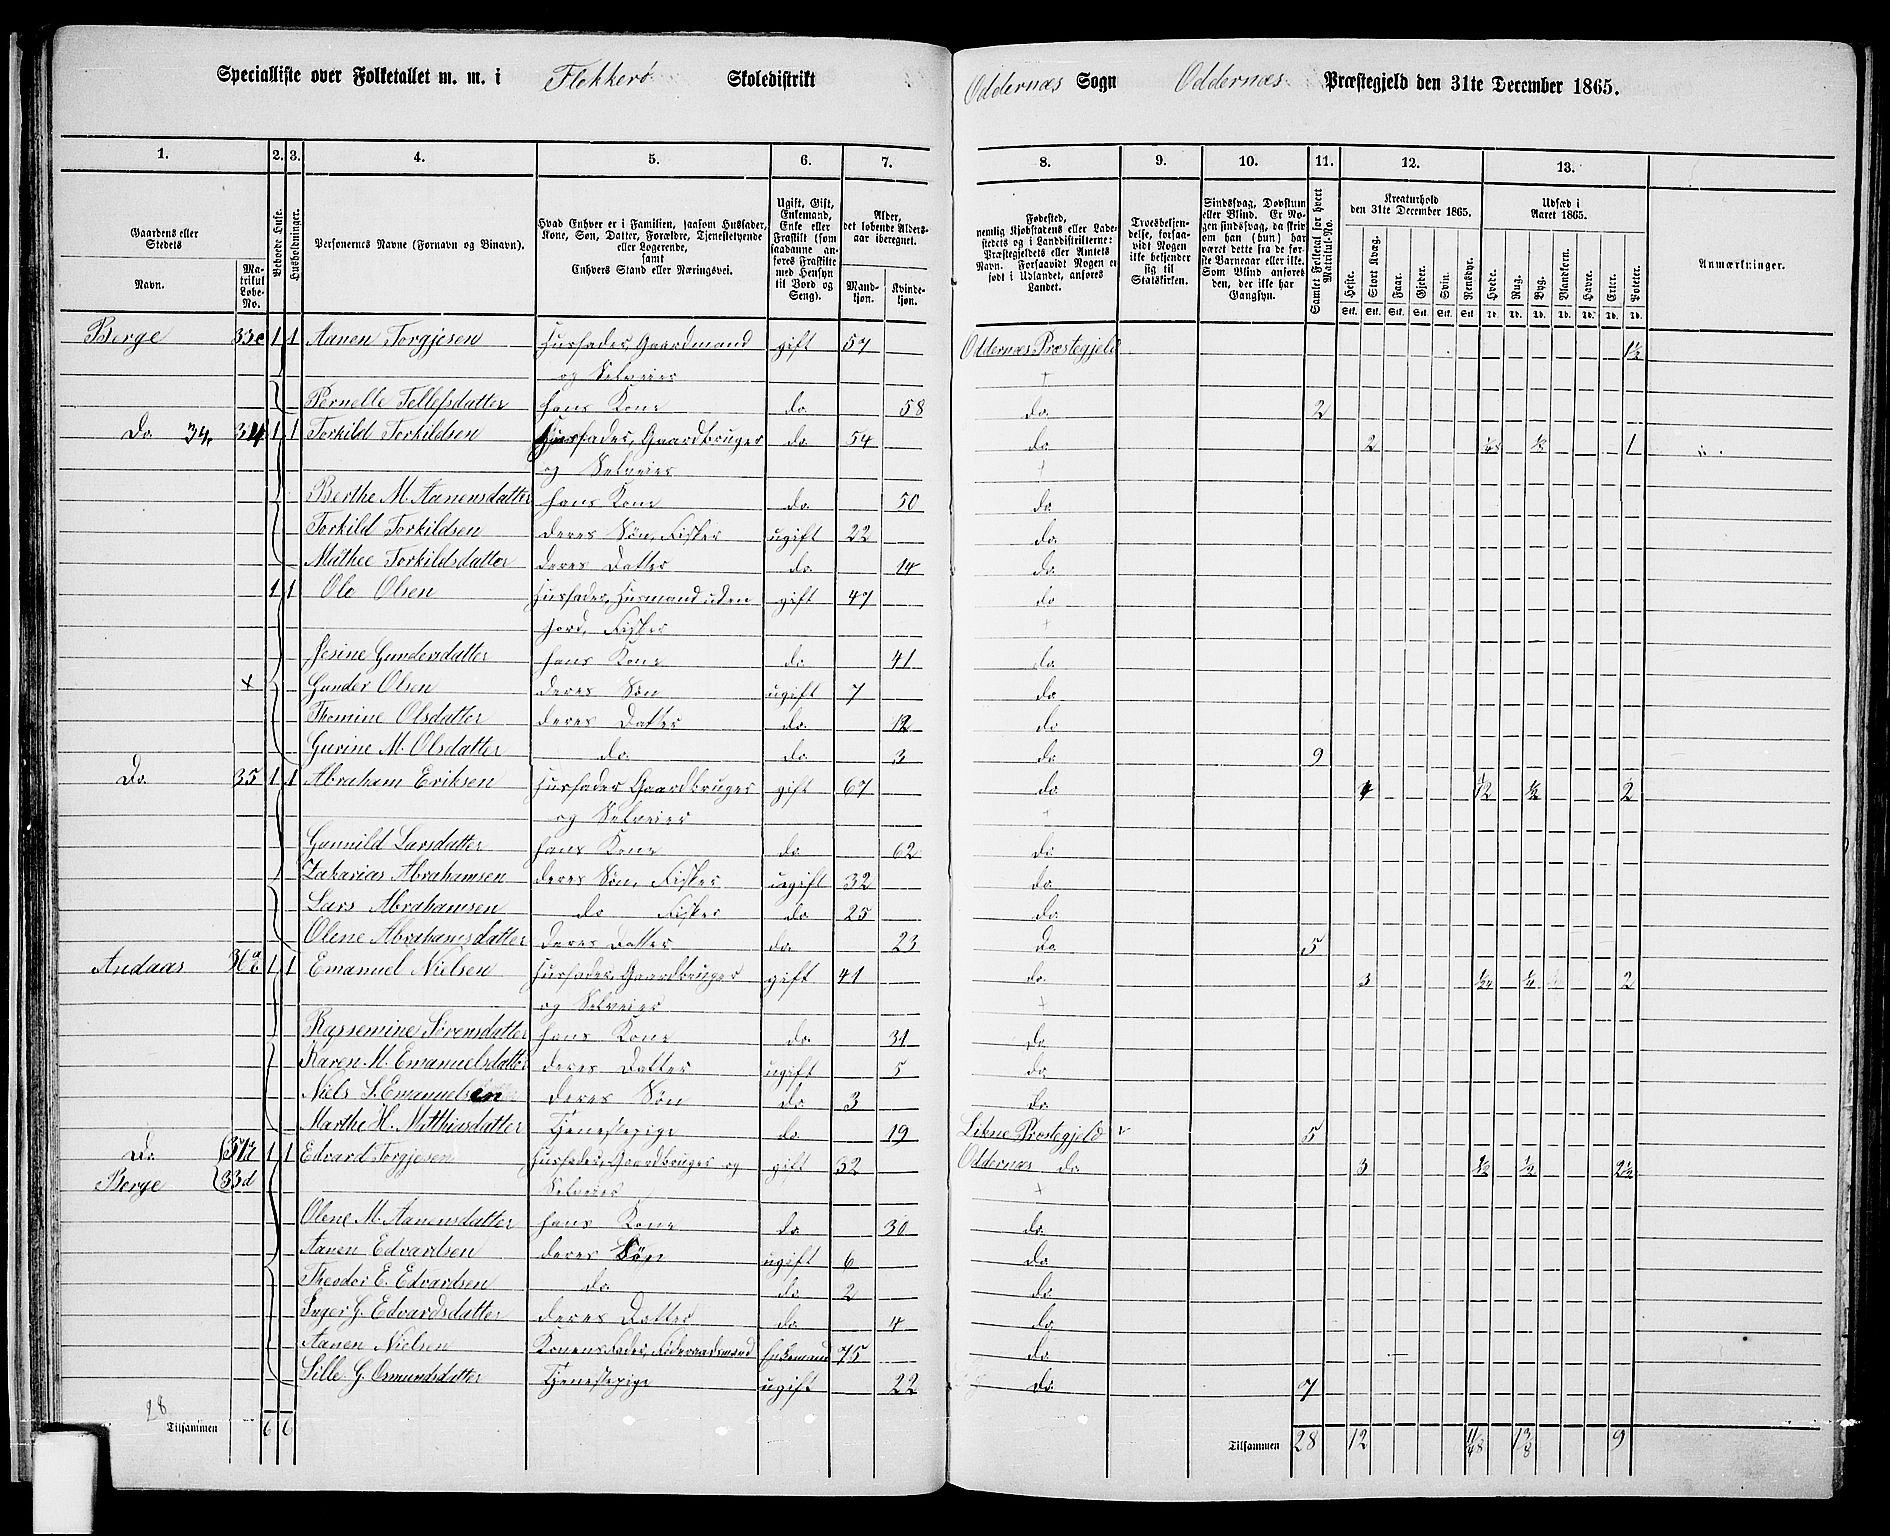 Specialliste over Folketallet m. m. i Flekkerø Skoledistrikt Oddernæs Sogn Oddernæs Præstegjeld den 31te December 1865.
1. 2. 3. 4. 5. 6. 7. 8. 9. 10. 11. 12. 13.
Gaardens eller Stedets Navn. Matrikul Løbe-No. Beboede Huse. Husholdninger. Personernes Navne (Fornavn og Binavn). Hvad Enhver er i Familien, saasom Husfader, Kone, Søn, Datter, Forældre, Tjenestetyende eller Logerende, samt Enhvers Stand eller Næringsvei. Ugift, Gift, Enkemand, Enke eller Fraskilt (som saadanne anføres Fraskilte med Hensyn til Bord og Seng). Alder, det løbende Aldersaar iberegnet. Mandkjøn. Kvindekjøn. Fødested, nemlig Kjøbstadens eller Ladestedets og i Landdistrikterne: Præstegjeldets eller Amtets Navn. Forsaavidt Nogen er født i Udlandet, anføres Landet. Troesbekjendelse, forsaavidt Nogen ikke bekjender sig til Statskirken. Sindssvag, Døvstum eller Blind. Er Nogen sindssvag, da skrives om han (hun) har været dette fra de første Barneaar eller ikke. Som Blind anføres den, der ikke har Gangsyn. Samlet Folketal for hvert Matrikul-No. Kreaturhold den 31te December 1865. Heste. Stort Kvæg. Faar. Gjeder. Svin. Rensdyr. Udsæd i Aaret 1865. Hvede. Rug. Byg. Blandkorn. Havre. Erter. Poteter. Anmærkninger.
Berge 33c 1 1 Aanen Torgjesen Husfader, Gaardmand gift 57 Oddernæs Præstegjeld 1½
og Selveier +
Pernelle Tellefsdatter hans Kone do 58 do. 2
Do 34. 34 1 1 Torkild Torkildsen Husfader, Gaardbruger do 54 do 2 1
og Selveier +
Berthe M. Aanensdatter hans Kone do 50 do
Torkild Torkildsen deres Søn, Fisker ugift 22 do.
Mathee Torkildsdatter deres Datter do. 14 do.
1 1 Ole Olsen Husfader, Husmand uden gift 47 do
Jord, Fisker +
Jesine Gundersdatter hans Kone do 41 do
x Gunder Olsen deres Søn ugift 7 do
Thomine Olsdatter deres Datter do. 12 do
Gurine M. Olsdatter do. do. 3 do 9
Do. 35 1 1 Abraham Eriksen Husfader Gaardbruger gift 67 do 4 1/2 ½ 2
og Selveier
Gunnild Larsdatter hans Kone do 62 do
Zakarias Abrahamsen deres Søn, Fisker ugift 32 do
Lars Abrahamsen do Fisker do 25 do.
Olene Abrahamsdatter deres Datter do. 23 Do 5
Andaas 36 a b 1 1 Emanuel Nielsen Husfader, Gaardbruger gift 41 do. 3 ¼ 2
og Selveier +
Rassemine Sørensdatter hans Kone do. 31 do
Karen M. Emanuelsdatter deres Datter ugift 5 do.
Niels S. Emanuelsen deres Søn do 3 do.
Marthe H. Matthiasdatter Tjenestepige do 19 Præstegjeld 5
Do. 1 1 Edvard Torgjesen Husfader, Gaardbruger og gift 32 Oddernæs do. 3 ½ ½ 2½
Berge 33d Selveier +
Olene M. Aanensdatter hans Kone do 30 do.
Aanen Edvardsen deres Søn ugift 6 do.
Theodor E. Edvardsen do. do 2 do.
Inger G. Edvardsdatter deres Datter do. 4 do.
Aanen Nielsen Konens Fader, Føderaadsmand Enkemand 75 do.
Sille G. Osmundsdatter Tjenestepige ugift 22 do. 7
28
Tilsammen 6 6 Tilsammen 28 12 11/48 13/8 9